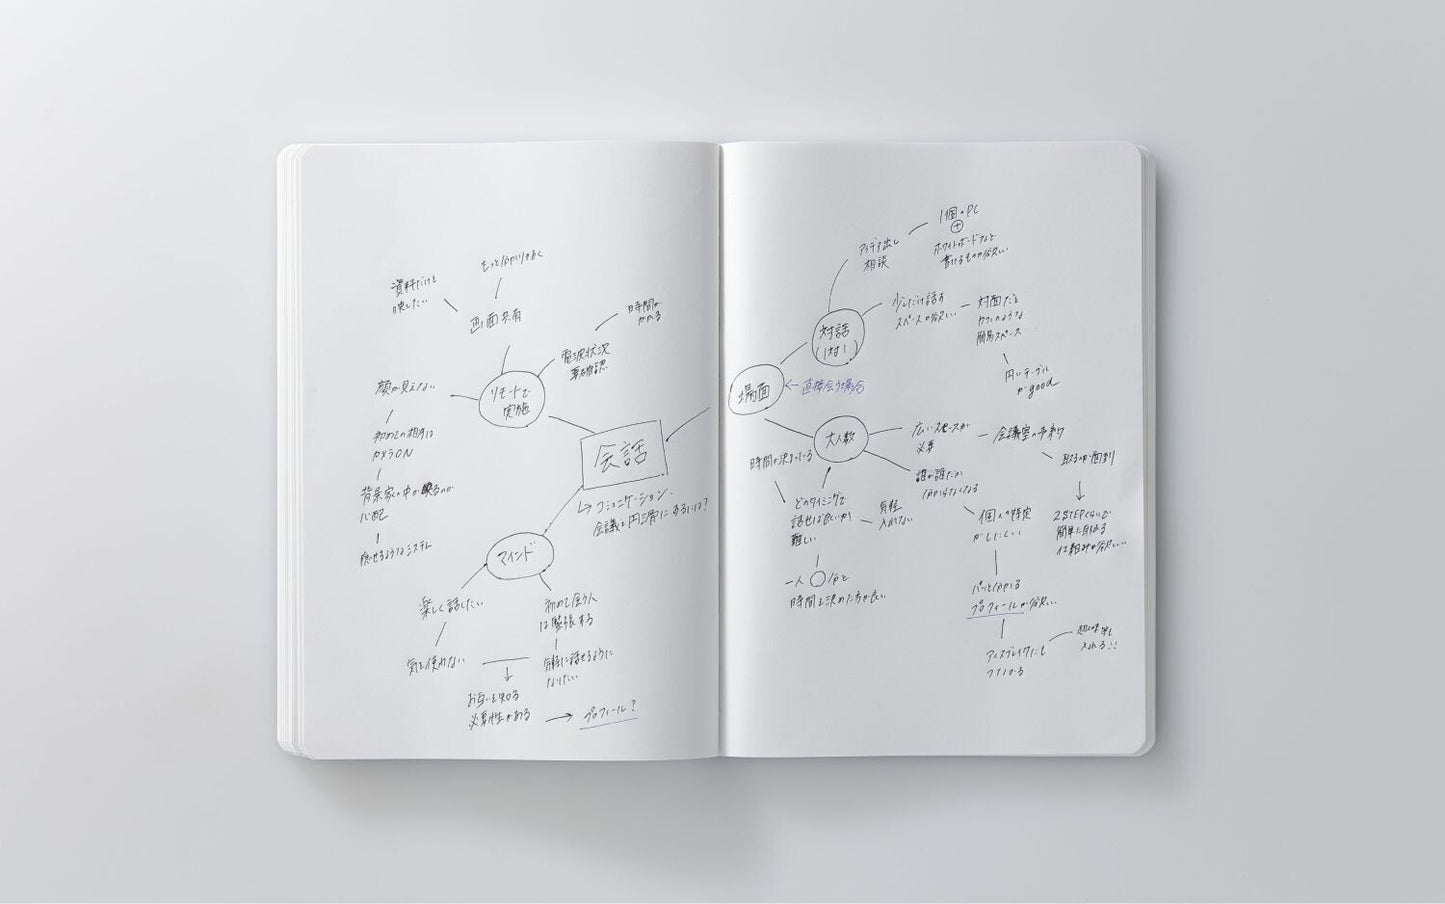 もっと分かりやすく
資料だけを
映したい
画面共有
時間が
かかる
電波状況
要確認
顔が見えない
リモートで
実施
初めての相手は
カメラON
背景家の中が映るのが
心配
隠せるようなシステム
会話
↳コミュニケーション、
会議を円滑にするには?
マインド
楽しく話したい
初めて会う人
は緊張する
気を使わない
気軽に話せるように
なりたい
お互いを知る
必要性がある
プロフィール?
1個・PC
+
ホワイトボードなど
書けるものが欲しい
アイデア出し
相談
対話
(1対1)
少しだけ話す
スペースが欲しい
対面だと
カフェのような
簡易スペース
円いテーブル
がgood
場面
←直接会う場合
大人数
広いスペースが
必要
会議室の予約
取るのが面倒
2STEPくらいで
簡単に取れる
仕組みが欲しい
時間が決まっている
どのタイミングで
話せば良いか
難しい
一人○分と
時間を決めた方が良い
誰が誰だか
分からなくなる
個人の特定
がしにくい
パッと分かる
プロフィールが欲しい
アイスブレイクにも
つながる
趣味等も
入れる!!